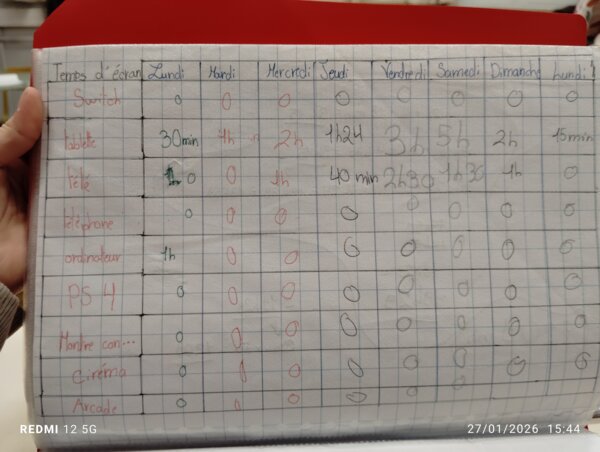 Temps d'écran Lundi Mardi Mercredi Jeudi Vendredi Samedi Dimanche Lundi
Switch 0 0 0 0 0 0 0 0
tablette 30min 4h 2h 1h24 3h 5h 2h 15min
télé 0 0 1h 40 min 2h30 1h30 1h 0
téléphone 0 0 0 0 0 0 0 0
ordinateur 1h 0 0 0 0 0 0 0
PS4 0 0 0 0 0 0 0 0
Montre con... 0 0 0 0 0 0 0 0
cinéma 0 0 0 0 0 0 0 0
Arcade 0 0 0 0 0 0
REDMI 12 5G
27/01/2026 15:44